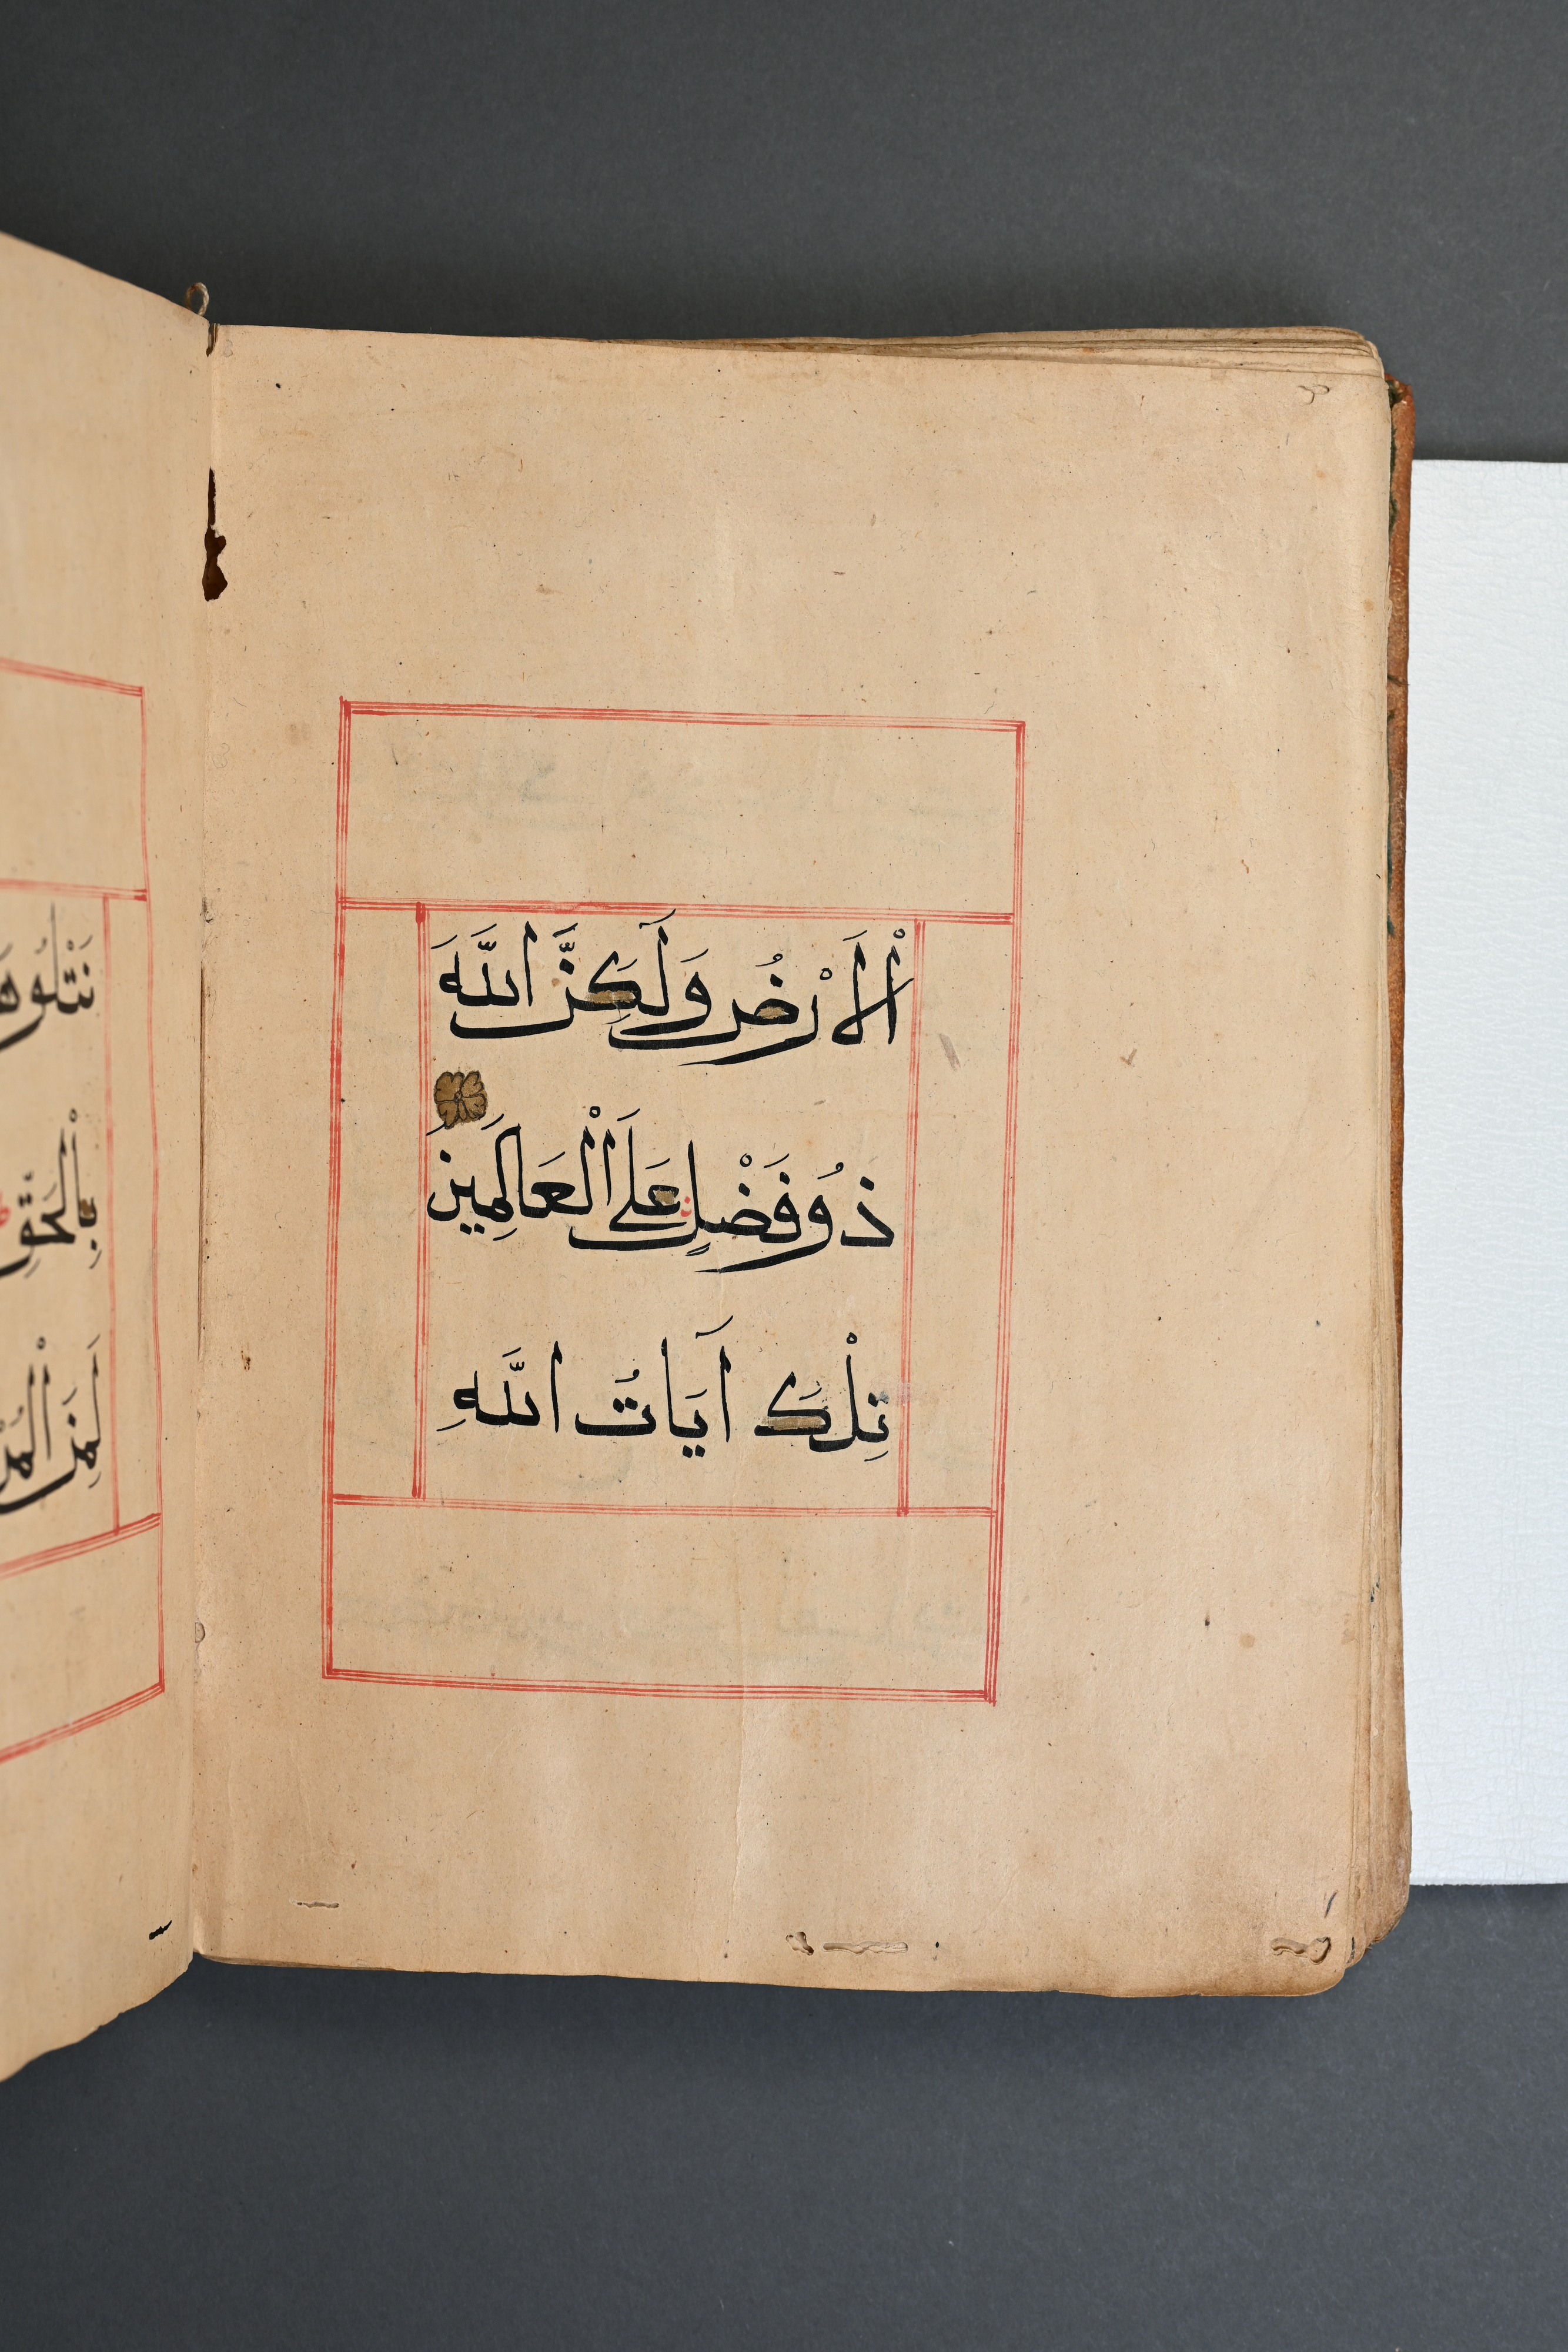 اْلَاَرْضُ وَلَكِنَّ اللَّهَ
ذُو فَضْلٍ عَلَى الْعَالَمِينَ
تِلْكَ آيَاتُ اللَّهِ
نَتْلُوهَا
بِالْحَقِّ
لَمِنَ الْمُرْ